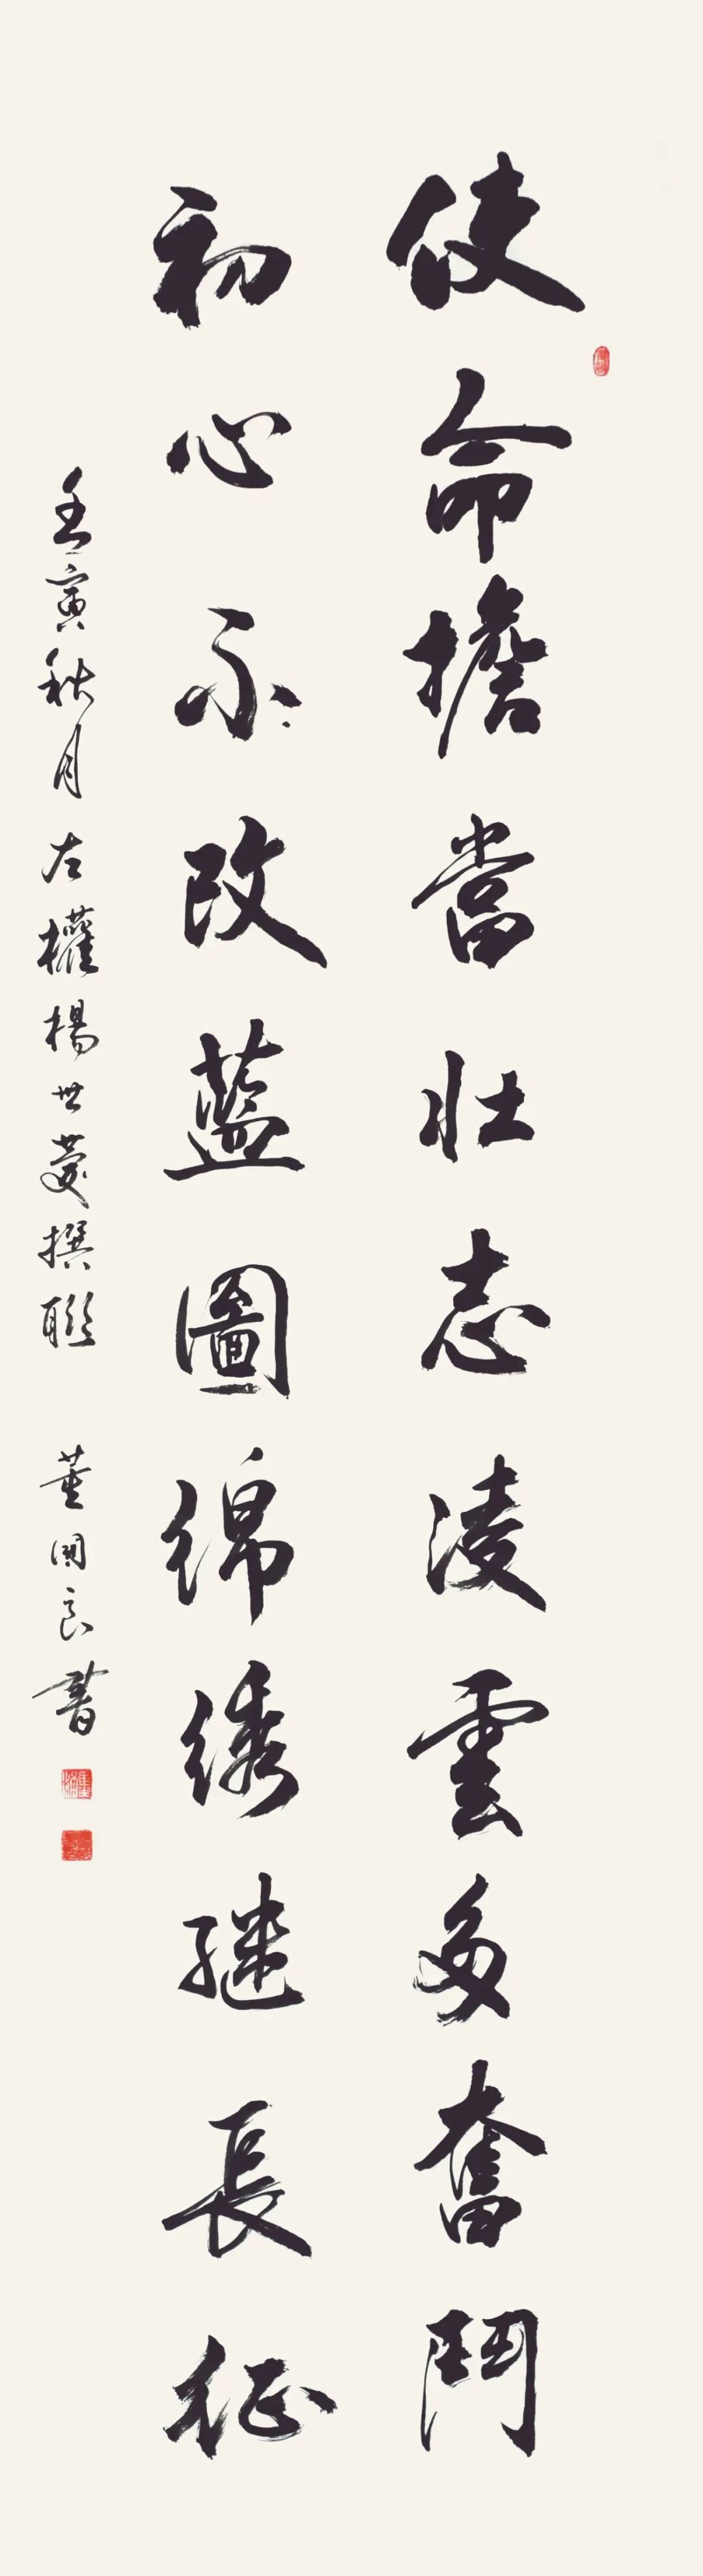 使命擔當壯志凌雲多奮鬥
初心不改藍圖綿绣继長征
壬寅秋月左權楊世慶撰聯 董国良書